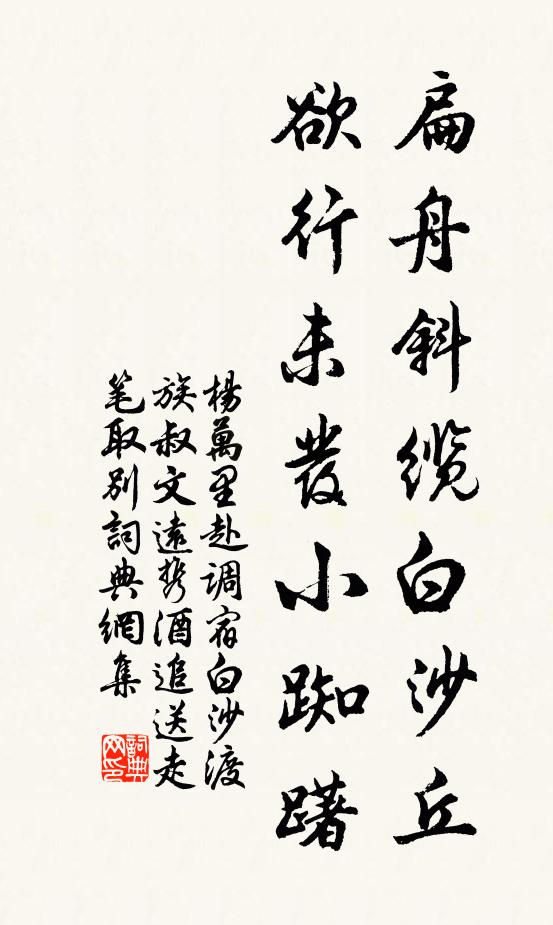 扁舟斜缆白沙丘
欲行未發小踟躇
楊萬里赴调宿白沙渡
族叔文遠携酒追送走
笔取别詞典網集
詞典网印